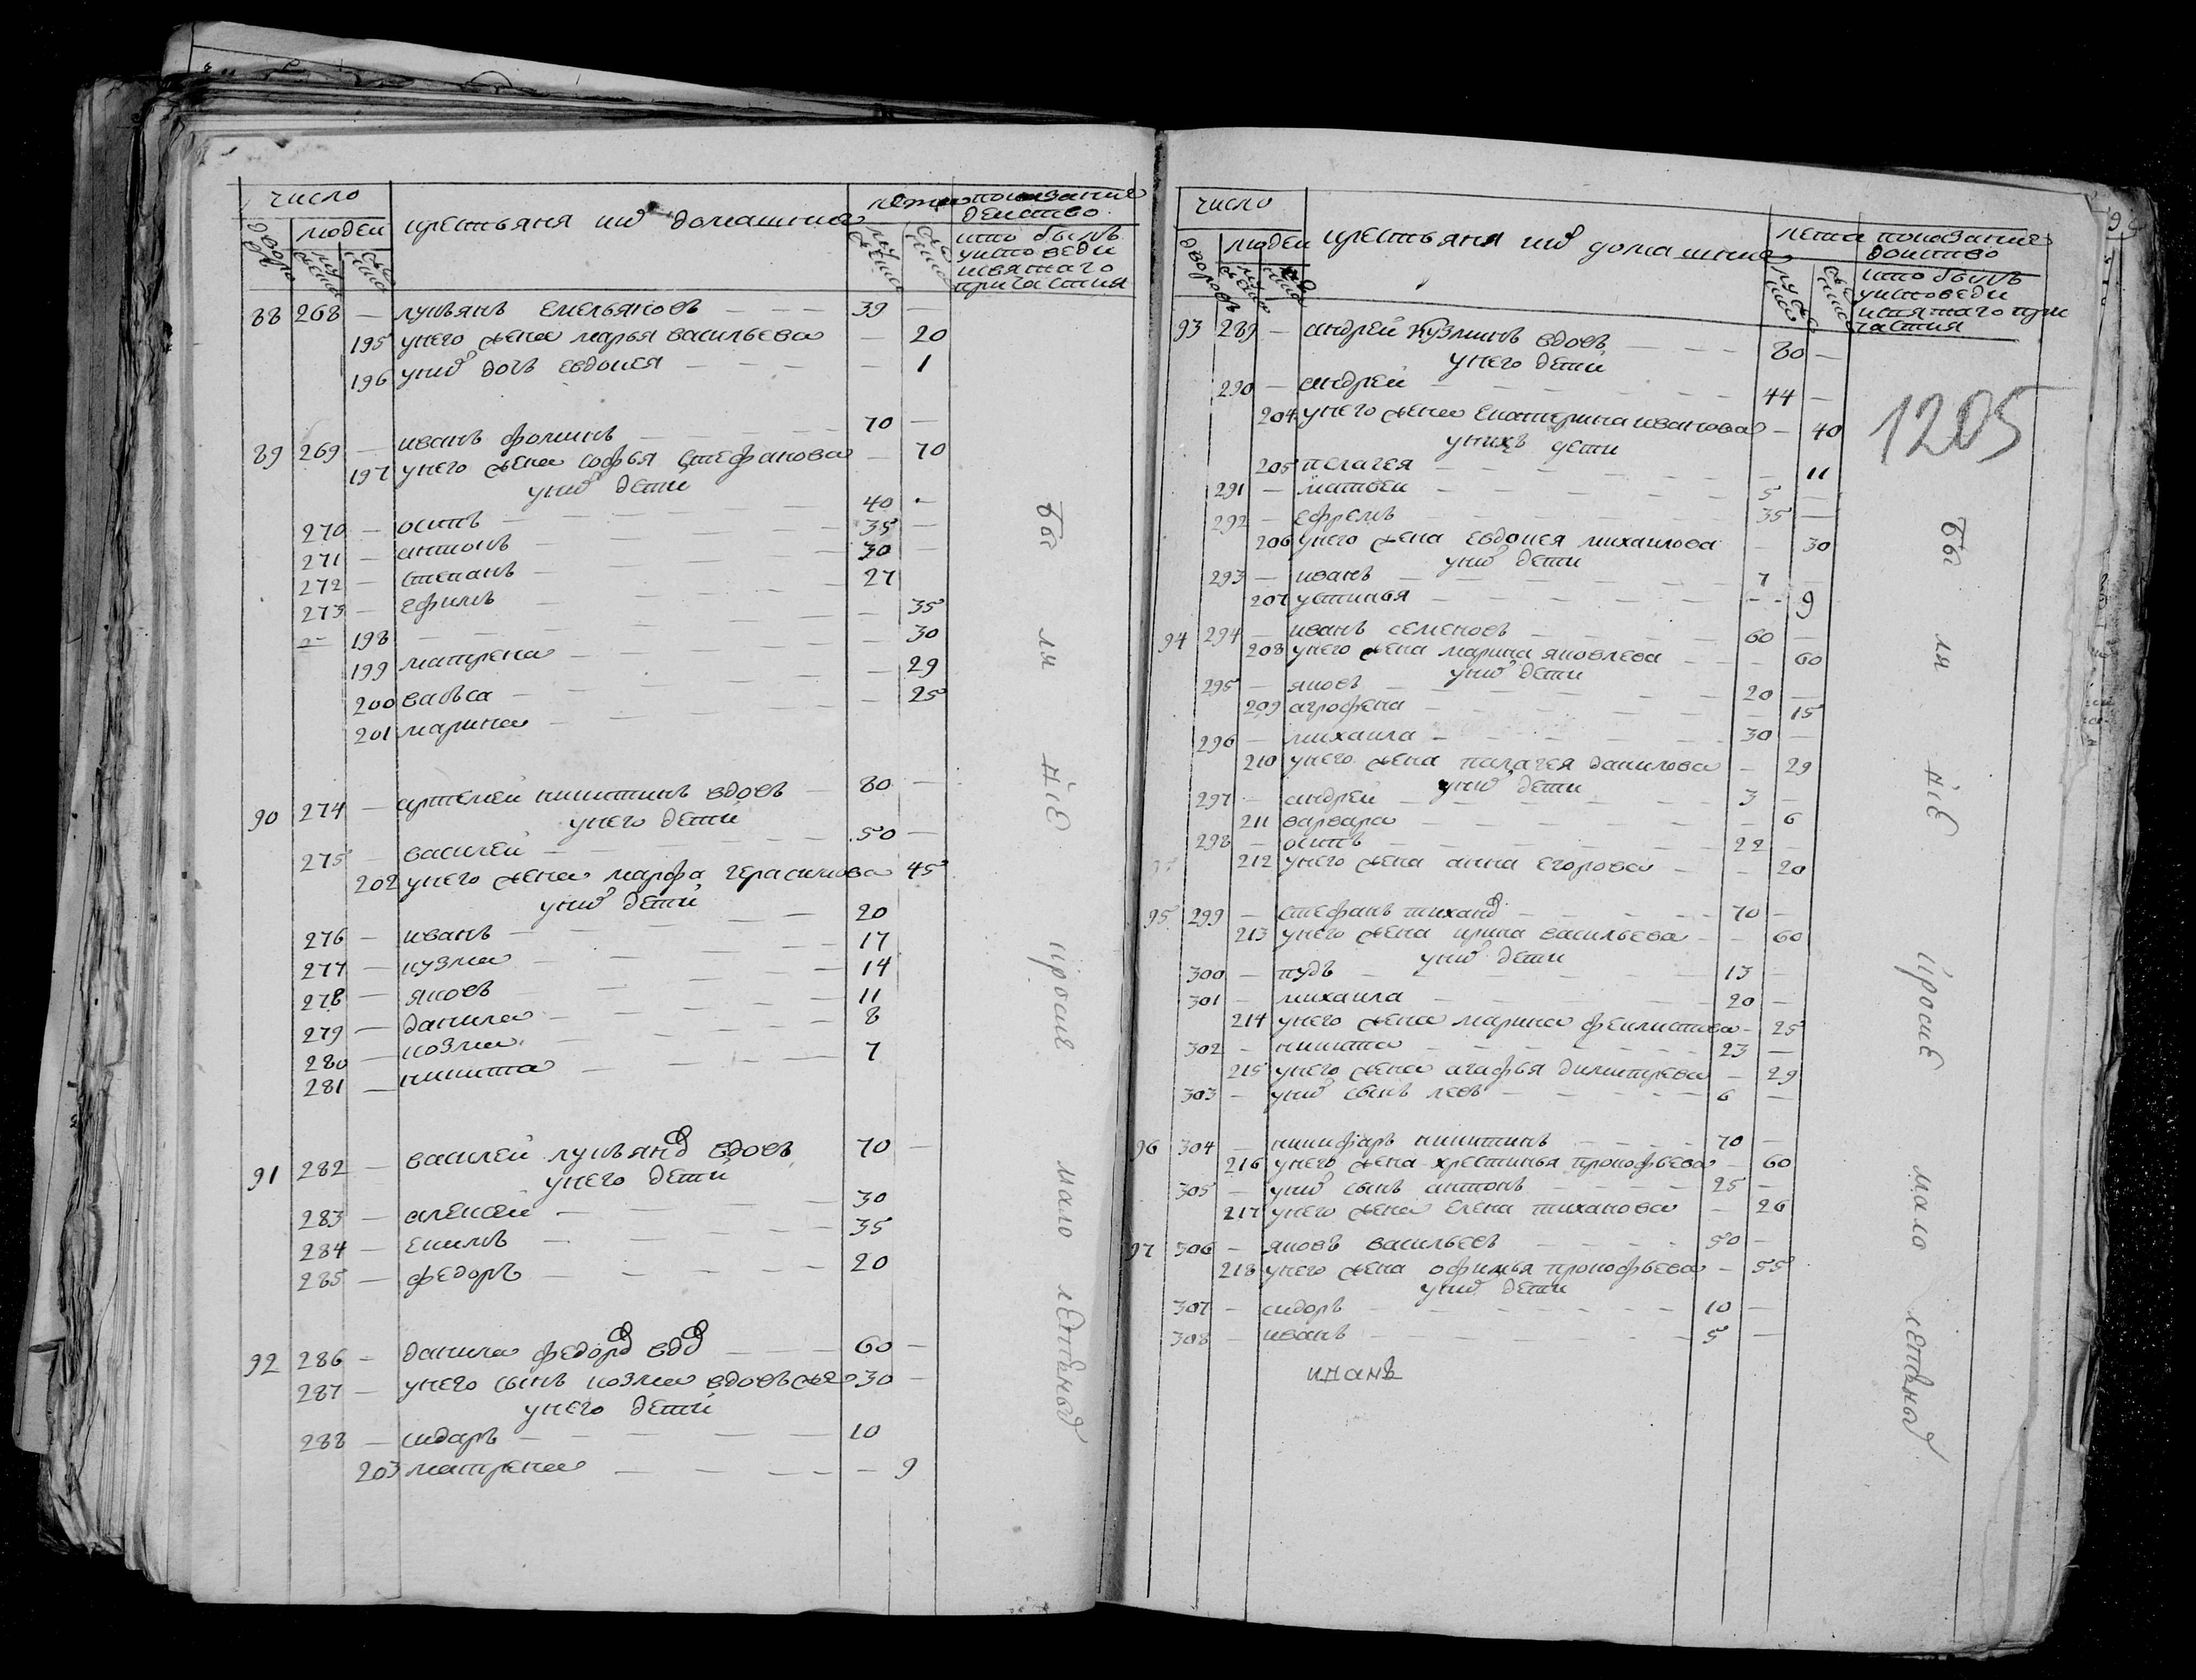 число
крестьяня ихъ домашния
лета
показание
действо
дворовъ
людей
кто былъ
уисповеди
исвятаго
причастия
88 268 — лукьянъ емельяновъ — 39 —
195 унего жена марья васильева — 20
196 ихъ дочь евдокея — 1
89 269 — иванъ фоминъ — 70 —
197 унего жена софья стефанова — 70
унихъ дети
270 — осипъ — 40 —
271 — антонъ — 35 —
272 — степанъ — 30 —
273 — ефимъ — 27
198 — 35
199 матрена — 30
200 васьса — 29
201 марина — 25
90 274 — артемей никитинъ вдовъ — 80 —
унего дети
275 — василей — 50 —
202 унего жена марфа герасимова 45
унихъ дети
276 — иванъ — 20
277 — кузма — 17
278 — яковъ — 14
279 — данила — 11
280 — козма — 8
281 — никита — 7
91 282 — василей лукьяновъ вдовъ 70 —
унего дети
283 — алексей — 30
284 — екимъ — 35
285 — федоръ — 20
92 286 — данила федоровъ вдовъ — 60 —
287 — унего сынъ козма вдовъ же 30 —
унего дети
288 — сидаръ — 10
203 матрена — 9
бы ля ніе кроме мало летныхъ
число
крестьяня ихъ домашния
лета
показание
действо
дворовъ
людей
кто былъ
уисповеди
исвятаго при
частия
93 289 — андрей кузминъ вдовъ — 80 —
унего дети
290 — андрей — 44 —
204 унего жена екатерина иванова — 40
унихъ дети
205 пелагея — 11
291 — матвеи — 5 —
292 — ефремъ — 35 —
206 унего жена евдокея михаилова — 30
унихъ дети
293 — иванъ — 7 —
207 устинья — 9
94 294 — иванъ семеновъ — 60 —
208 унего жена марина яковлева — 60
унихъ дети
295 — яковъ — 20 —
209 агрофена — 15
296 — михаила — 30 —
210 унего жена палагея данилова — 29
унихъ дети
297 — андрей — 3 —
211 варвара — 6
298 — осипъ — 22 —
212 унего жена анна егорова — 20
95 299 — стефанъ тихановъ — 70 —
213 унего жена ирина васильева — 60
унихъ дети
300 — пудъ — 13 —
301 — михаила — 20 —
214 унего жена марина феилистова — 25
302 — никита — 23 —
215 унего жена агафья димитрева — 29
303 — унихъ сынъ левъ — 6 —
96 304 — никифаръ никитинъ — 70 —
216 унего жена хрестинья прокофьева — 60
305 — унихъ сынъ антонъ — 25 —
217 унего жена елена тиханова — 26
97 306 — яковъ васильевъ — 50 —
218 унего жена офимья прокофьева — 55
унихъ дети
307 — сидоръ — 10 —
308 — иванъ — 5 —
1205
бы ля ніе кроме мало летныхъ